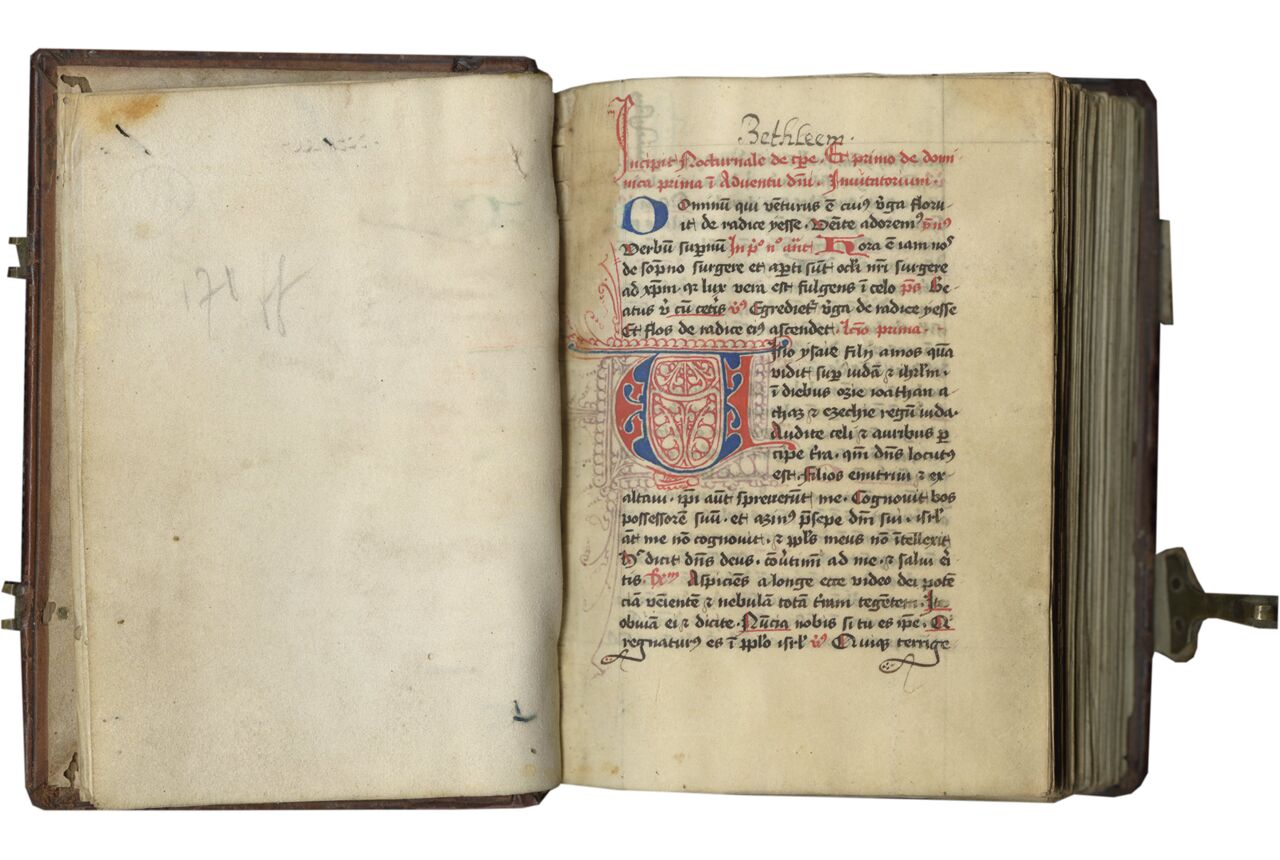 171 ff
Bethleem.
Incipit Nocturnale de tp̄e. Et primo de domi
nica prima ī Adventu dn̄i. Invitatorium.
Omninū qui vēturus ē cuiꝰ v̄ga floru-
it de radice yesse. Veīte adoremꝰ
Verbū sup̄nū In pͦ nͦ an̄t Hora ē iam noˢ
de sop̄no surgere et ap̄ti sūt ocl̄i nr̄i surgere
ad xp̄m qr lux vera est fulgens ī celo p̄s Be-
atus v̄ cū cetīs v̄s Egrediet̄ v̄ga de radice yesse
Et flos de radice eiꝰ ascendet. lcīo prima.
Visio ysaie filij amos quā
vidit sup̄ iudā ⁊ ihrl̄m.
ī diebus ozie ioathan a-
chaz ⁊ ezechie regū iuda.
Audite celi ⁊ auribus p̄
cipe t̄ra. qm̄ dn̄s locutꝰ
est. filios enutriui ⁊ ex-
altaui. ip̄i aūt spreuerūt me. Cognouit bos
possessorē suū. et azinꝰ p̄sepe dn̄i sui. isrl̄
āt me nō cognouit. ⁊ ppl̄s meus nō ītellexit
dicit dn̄s deus. cōūtimī ad me. ⁊ salui ēi
tis. Aspiciēs a longe ecce video dei potē
ciā veīentē ⁊ nebulā totā t̄ram tegētem. Ite
obuiā ei ⁊ dicite. Nūcia nobis si tu es ip̄e. Q̄
regnaturꝰ es ī ppl̄o isrl̄ v̄s Quiqꝫ terrige